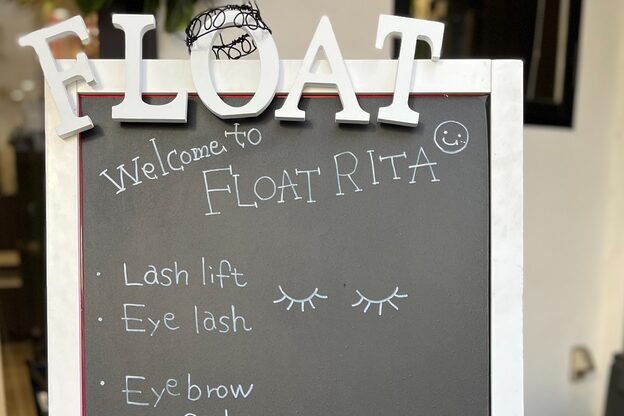 FLOAT
Welcome to
FLOAT RITA
· Lash lift
· Eye lash
· Eyebrow